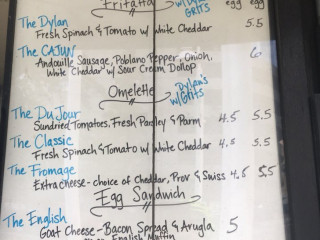 Fritatta w/Dylan's GRITS egg egg
The Dylan
Fresh Spinach & Tomato w/ White Cheddar 5.5
The CAJUN
Andouille Sausage, Poblano Pepper, Onion, 6
White Cheddar w/ Sour Cream Dollop
Omelette Dylan's
w/Grits
The Du Jour
Sundried Tomatoes, Fresh Parsley & Parm 4.5 5.5
The Classic
Fresh Spinach & Tomato w/ White Cheddar 4.5 5.5
The Fromage
Extra cheese - choice of Cheddar, Prov & Swiss 4.5 5.5
Egg Sandwich
The English
Goat Cheese - Bacon Spread & Arugla 5
on English Muffin